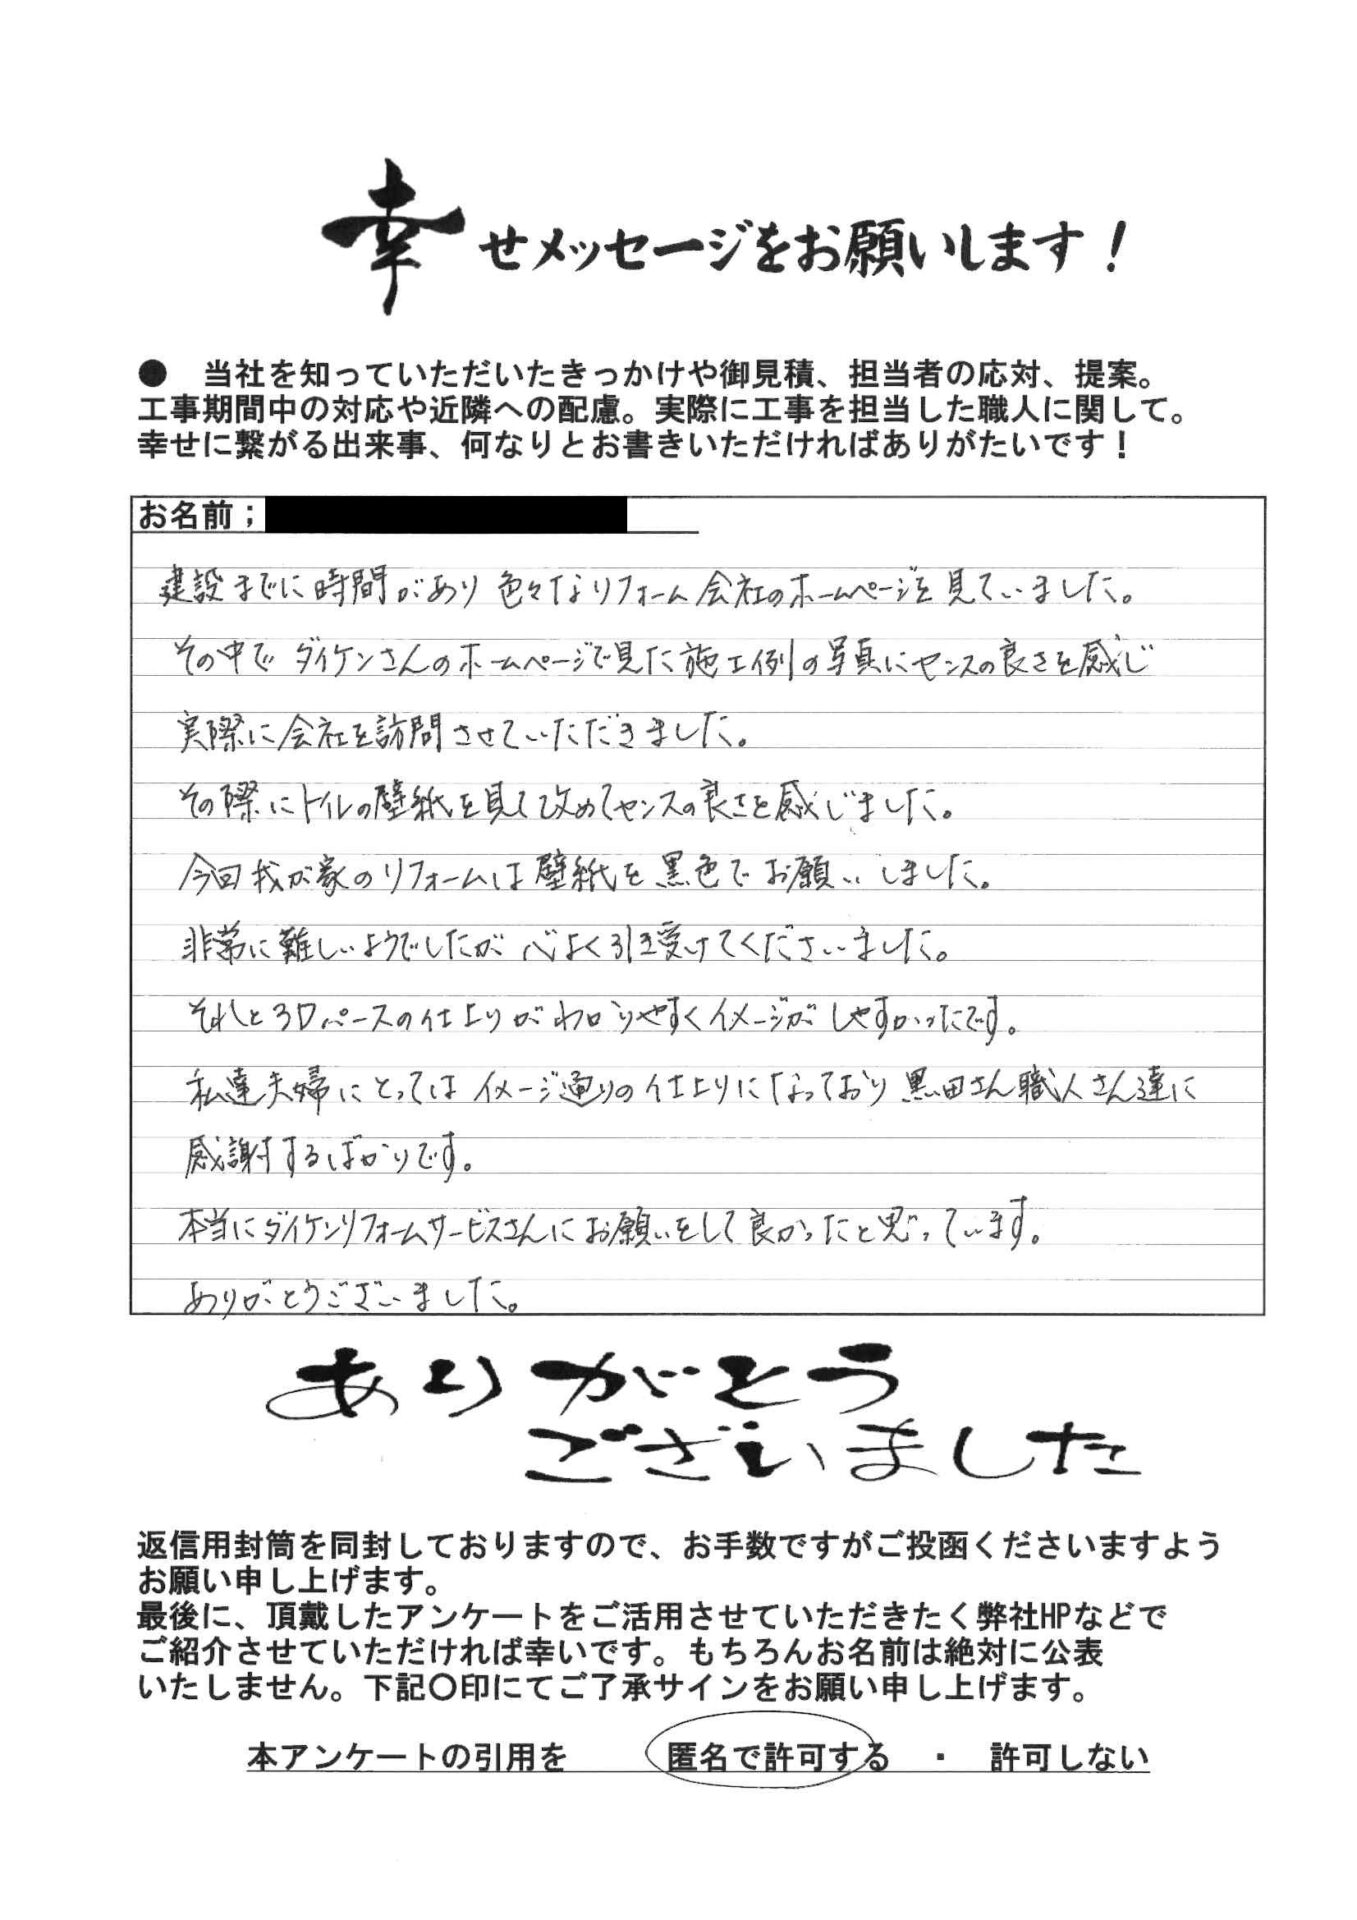 幸せメッセージをお願いします！
● 当社を知っていただいたきっかけや御見積、担当者の応対、提案。
工事期間中の対応や近隣への配慮。実際に工事を担当した職人に関して。
幸せに繋がる出来事、何なりとお書きいただければありがたいです！
お名前；
建設までに時間があり色々なリフォーム会社のホームページを見ていました。
その中でダイケンさんのホームページで見た施工例の写真にセンスの良さを感じ
実際に会社を訪問させていただきました。
その際にトイルの壁紙を見て改めてセンスの良さを感じました。
今回我が家のリフォームは壁紙を黒色でお願いしました。
非常に難しいようでしたが心よく引き受けてくださいました。
それと3Dパースの仕上りがわかりやすくイメージがしやすかったです。
私達夫婦にとってはイメージ通りの仕上りになっており黒田さん職人さん達に
感謝するばかりです。
本当にダイケンリフォームサービスさんにお願いをして良かったと思っています。
ありがとうございました。
ありがとう
ございました
返信用封筒を同封しておりますので、お手数ですがご投函くださいますよう
お願い申し上げます。
最後に、頂戴したアンケートをご活用させていただきたく弊社HPなどで
ご紹介させていただければ幸いです。もちろんお名前は絶対に公表
いたしません。下記〇印にてご了承サインをお願い申し上げます。
本アンケートの引用を 匿名で許可する ・ 許可しない